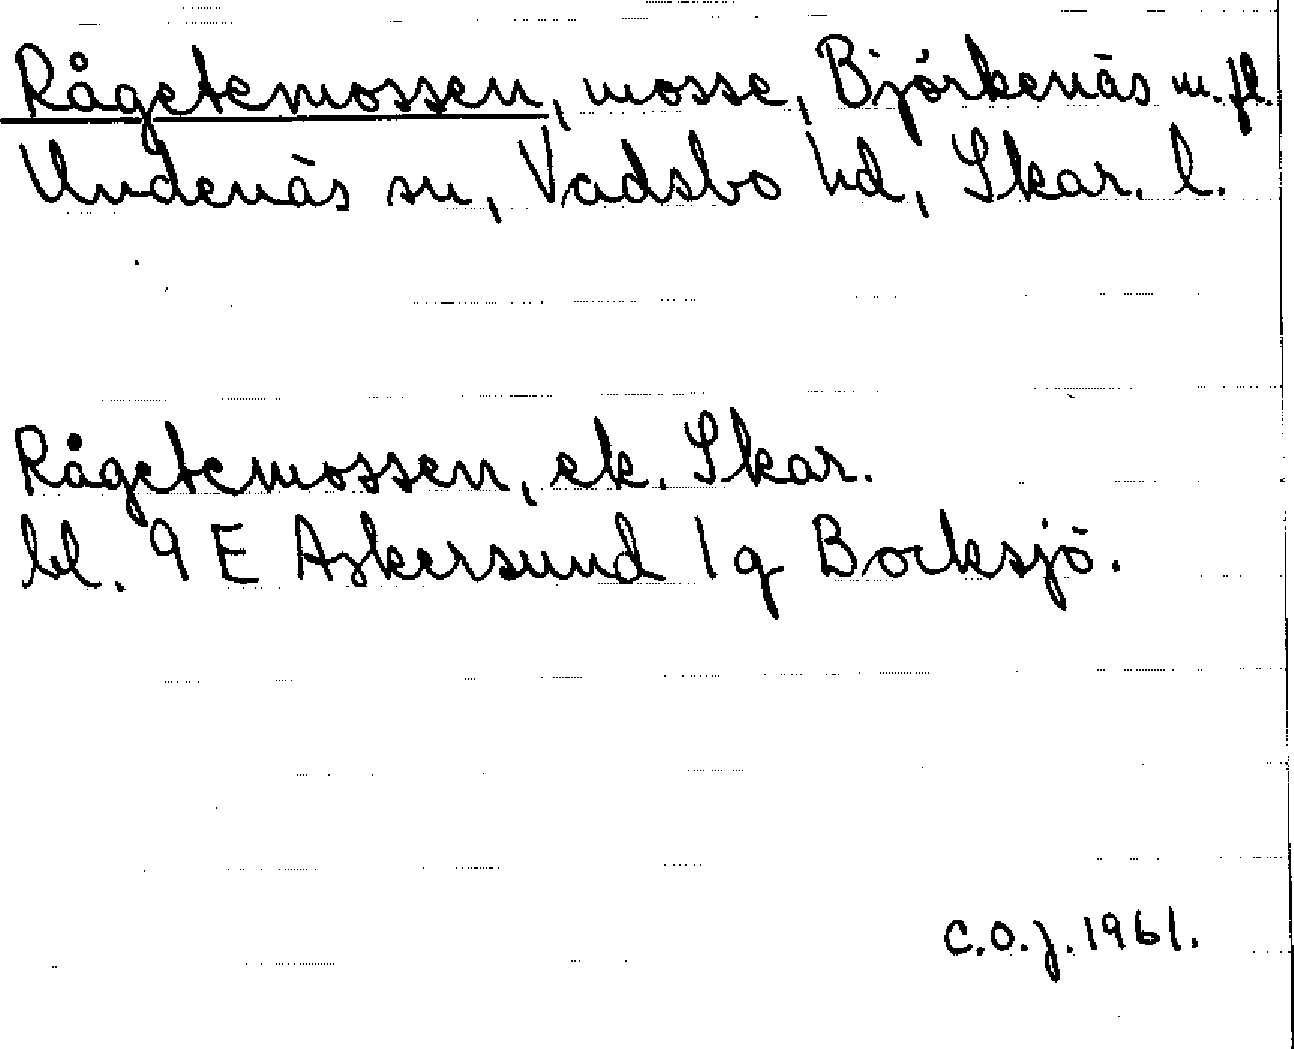 Rågetemossen, mosse, Björkenäs m. fl.
Undenäs sn, Vadsbo hd, Skar. l.
Rågetemossen, ek. Skar.
bl. 9 E Askersund 1g Bocksjö.
C.O.J. 1961.